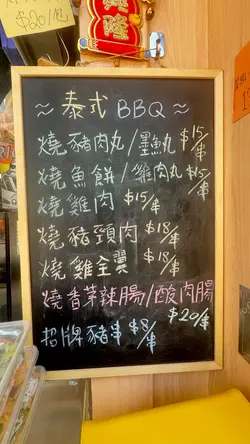 $20/包
隆
≈ 泰式 BBQ ≈
燒豬肉丸/墨丸 $15/串
燒魚餅/雞肉丸 $15/串
燒雞肉 $15/串
燒豬頸肉 $18/串
燒雞全翼 $18/串
燒香茅辣腸/酸肉腸
$20/串
招牌豬串 $8/串